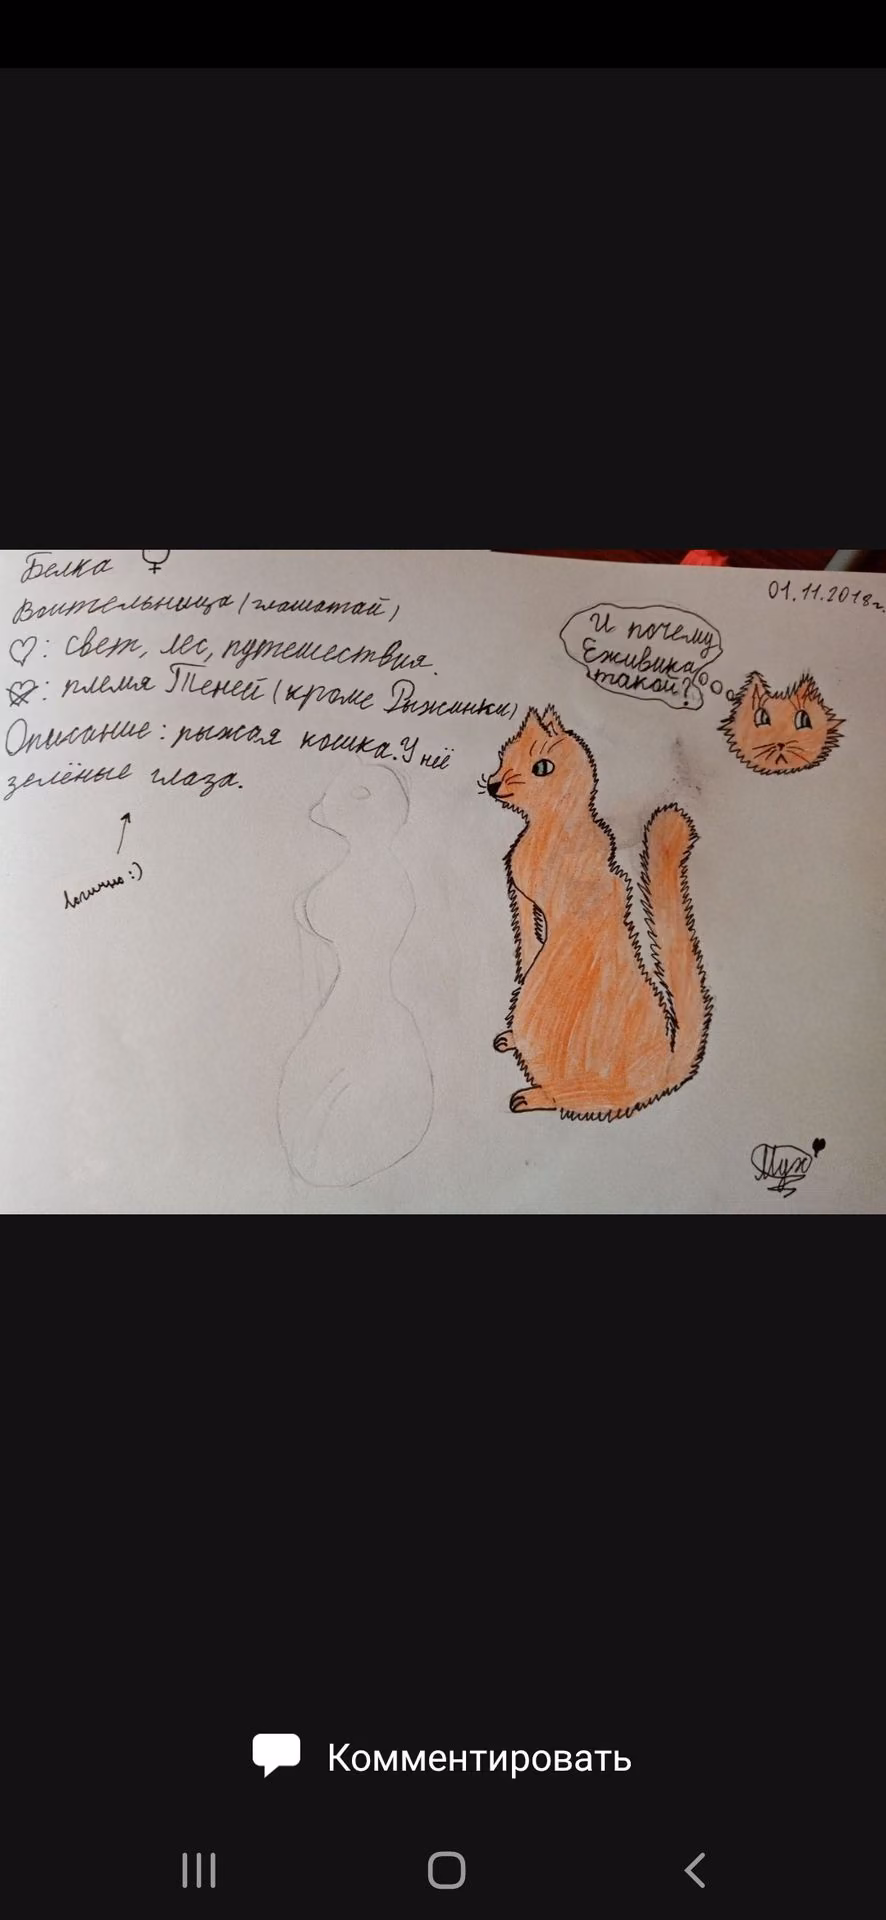 Белка ♀
Воительница (глашатай)
♡: свет, лес, путешествия.
племя Теней (кроме Рыжинки)
Описание: рыжая кошка. У неё
зелёные глаза.
логично :)
01.11.2018г.
И почему
Ежевика
такой?
Комментировать